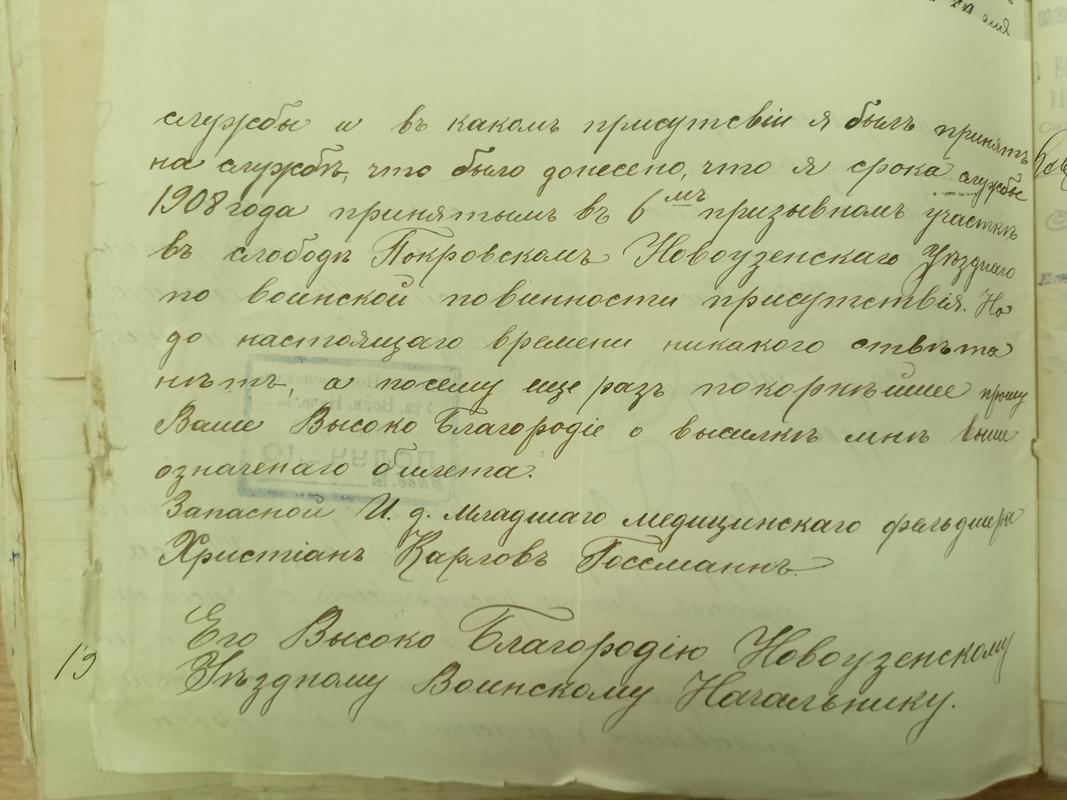 службы и въ какомъ присутсвіи я былъ принятъ
на службѣ, что было донесено, что я срока службы
1908 года принятымъ въ 6мъ призывномъ участкѣ
въ слободѣ Покровскомъ Новоузенскаго Уѣзднаго
по воинской повинности присутствія. Но
до настоящаго времени никакого отвѣта
нѣтъ, а посему еще разъ покорнѣйшее прошу
Ваше Высоко Благородіе о высилкѣ мнѣ выше
означенаго билета.
Запасной И. д. младшаго медицинскаго фельдшера
Христіанъ Карловъ Госсманнъ.
Его Высоко Благородію Новоузенскому
Уѣздному Воинскому Начальнику.